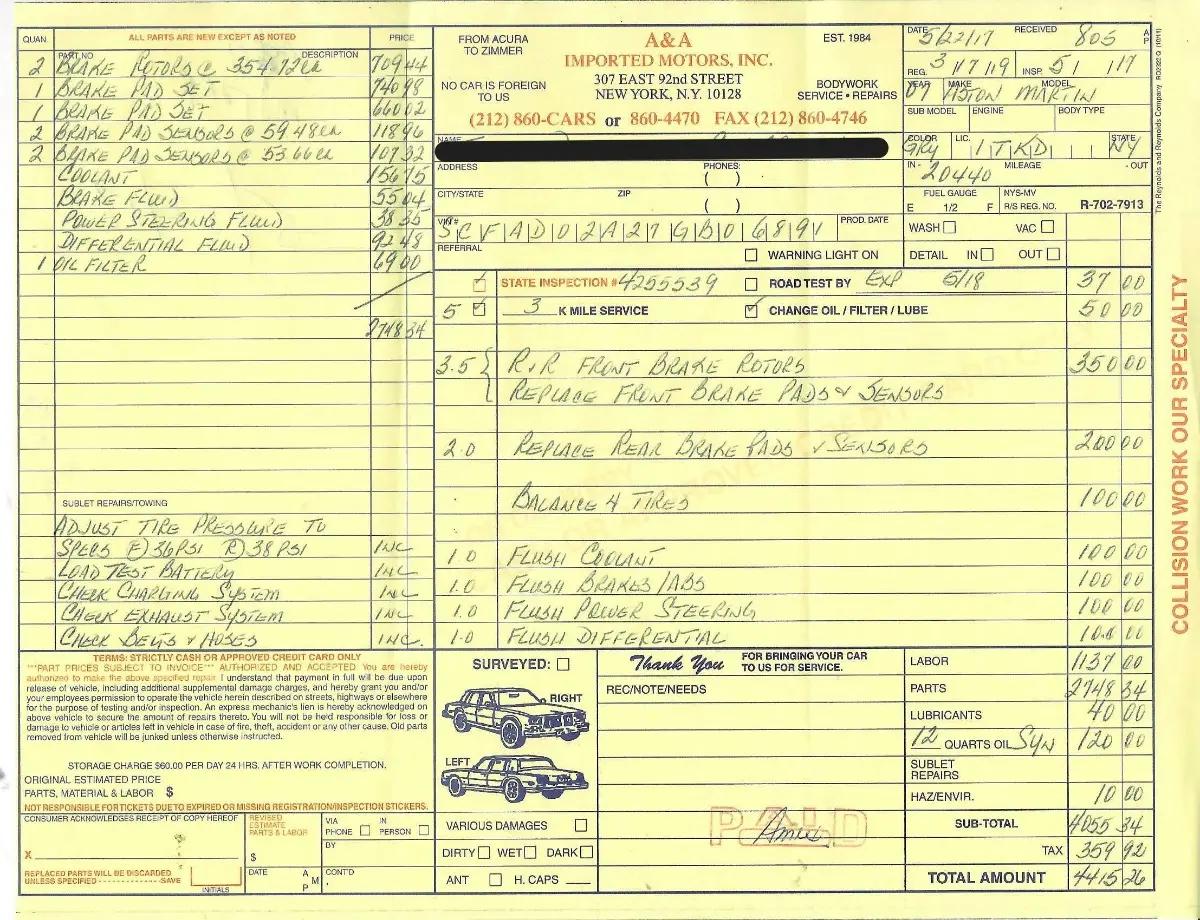 QUAN. ALL PARTS ARE NEW EXCEPT AS NOTED PRICE
PART NO DESCRIPTION
2 BRAKE ROTORS @ 354.72 ea 709 44
1 BRAKE PAD SET 740 98
1 BRAKE PAD SET 660 02
2 BRAKE PAD SENSORS @ 59 48 ea 118 96
2 BRAKE PAD SENSORS @ 53 66 ea 107 32
COOLANT 156 75
BRAKE FLUID 55 04
POWER STEERING FLUID 38 35
DIFFERENTIAL FLUID 92 48
1 OIL FILTER 69 00
2748 34
SUBLET REPAIRS/TOWING
ADJUST TIRE PRESSURE TO
SPECS F) 36 PSI R) 38 PSI INC
LOAD TEST BATTERY INC
CHECK CHARGING SYSTEM INC
CHECK EXHAUST SYSTEM INC
CHECK BELTS & HOSES INC.
TERMS: STRICTLY CASH OR APPROVED CREDIT CARD ONLY
***PART PRICES SUBJECT TO INVOICE*** AUTHORIZED AND ACCEPTED You are hereby
authorized to make the above specified repair. I understand that payment in full will be due upon
release of vehicle, including additional supplemental damage charges, and hereby grant you and/or
your employees permission to operate the vehicle herein described on streets, highways or elsewhere
for the purpose of testing and/or inspection. An express mechanic's lien is hereby acknowledged on
above vehicle to secure the amount of repairs thereto. You will not be held responsible for loss or
damage to vehicle or articles left in vehicle in case of fire, theft, accident or any other cause. Old parts
removed from vehicle will be junked unless otherwise instructed.
STORAGE CHARGE $60.00 PER DAY 24 HRS. AFTER WORK COMPLETION.
ORIGINAL ESTIMATED PRICE
PARTS, MATERIAL & LABOR $
NOT RESPONSIBLE FOR TICKETS DUE TO EXPIRED OR MISSING REGISTRATION/INSPECTION STICKERS.
CONSUMER ACKNOWLEDGES RECEIPT OF COPY HEREOF
X
REPLACED PARTS WILL BE DISCARDED
UNLESS SPECIFIED - SAVE
INITIALS
REVISED
ESTIMATE
PARTS & LABOR
$
VIA IN
PHONE PERSON
BY
DATE A M P
CONT'D
FROM ACURA
TO ZIMMER
NO CAR IS FOREIGN
TO US
A&A
IMPORTED MOTORS, INC.
307 EAST 92nd STREET
NEW YORK, N.Y. 10128
EST. 1984
BODYWORK
SERVICE • REPAIRS
(212) 860-CARS or 860-4470 FAX (212) 860-4746
NAME
ADDRESS PHONES:
( )
CITY/STATE ZIP
( )
VIN# SCFAD02A27GB06891 PROD. DATE
REFERRAL WARNING LIGHT ON
DATE 5/22/17 RECEIVED 805 A P
REG. 3/17/19 INSP. 5/ /17
YEAR 07 MAKE ASTON MODEL MARTIN
SUB MODEL ENGINE BODY TYPE
COLOR GRY LIC. 1TKD STATE NY
IN - 20440 MILEAGE - OUT
FUEL GAUGE NYS-MV
E 1/2 F R/S REG. NO. R-702-7913
WASH VAC
DETAIL IN OUT
The Reynolds and Reynolds Company RO2322 Q (10/11)
STATE INSPECTION # 4255539 ROAD TEST BY EXP 5/18 37 00
5 3 K MILE SERVICE CHANGE OIL / FILTER / LUBE 50 00
3.5 R & R FRONT BRAKE ROTORS 350 00
REPLACE FRONT BRAKE PADS & SENSORS
2.0 REPLACE REAR BRAKE PADS & SENSORS 200 00
BALANCE 4 TIRES 100 00
1.0 FLUSH COOLANT 100 00
1.0 FLUSH BRAKES/ABS 100 00
1.0 FLUSH POWER STEERING 100 00
1.0 FLUSH DIFFERENTIAL 100 00
COLLISION WORK OUR SPECIALTY
SURVEYED:
RIGHT
LEFT
VARIOUS DAMAGES
DIRTY WET DARK
ANT H. CAPS
Thank You FOR BRINGING YOUR CAR
TO US FOR SERVICE.
REC/NOTE/NEEDS
PAID
LABOR 1137 00
PARTS 2748 34
LUBRICANTS 40 00
12 QUARTS OIL SYN 120 00
SUBLET
REPAIRS
HAZ/ENVIR. 10 00
SUB-TOTAL 4055 34
TAX 359 92
TOTAL AMOUNT 4415 26